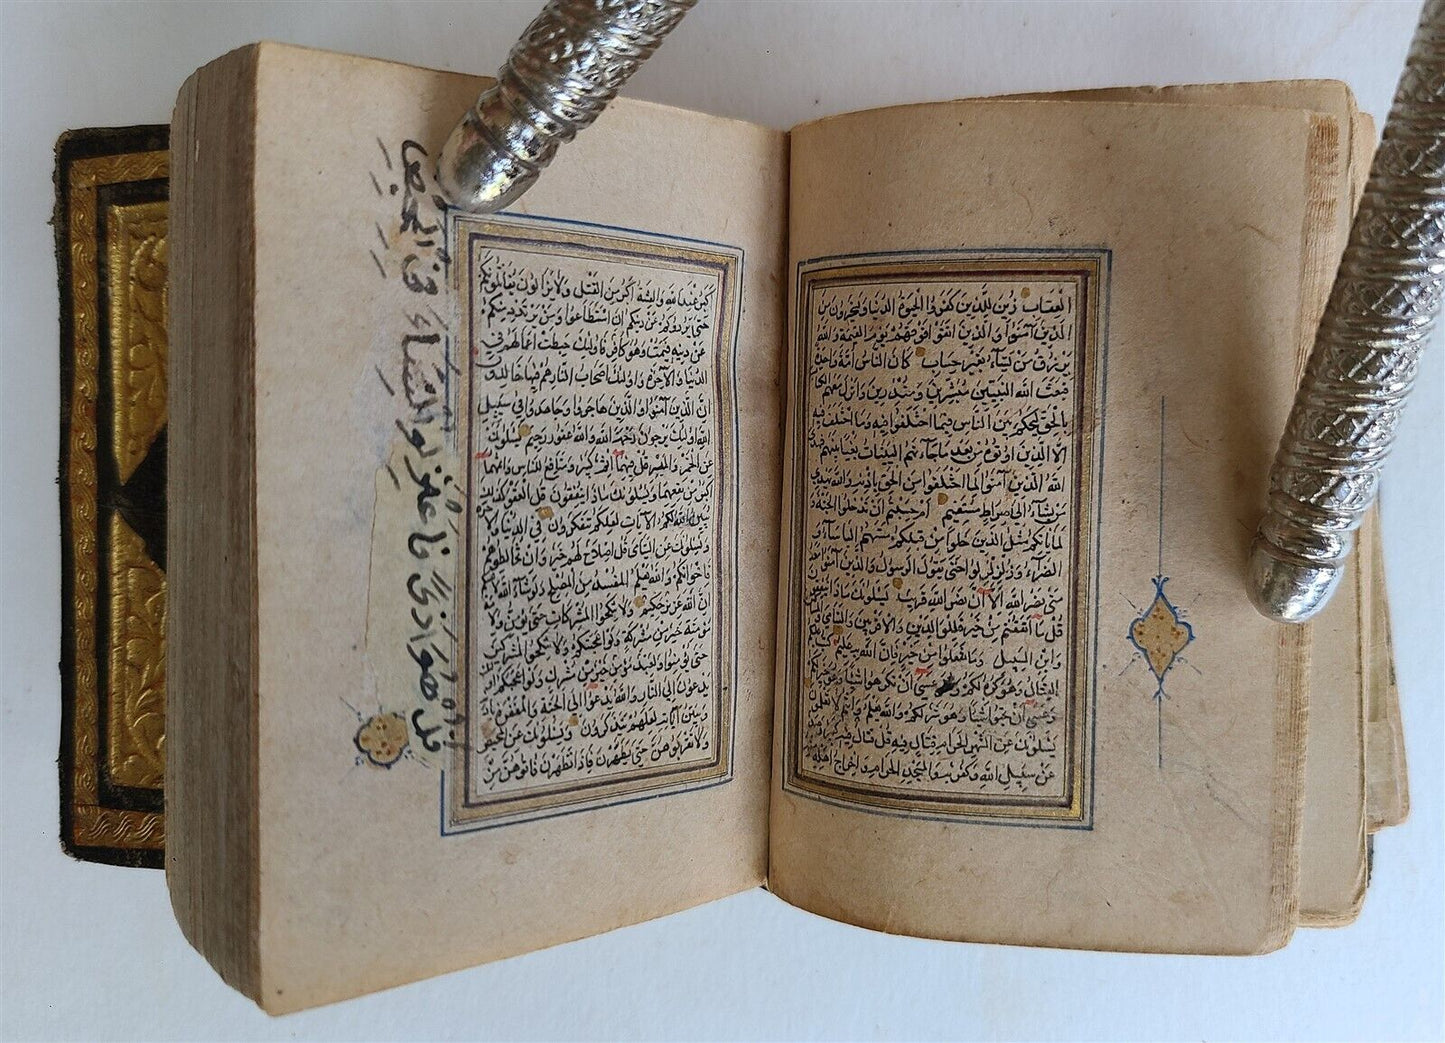 العقاب زين للذين كفروا الحيوة الدنيا ويسخرون من
الذين آمنوا والذين اتقوا فوقهم يوم القيمة والله
يرزق من يشاء بغير حساب كان الناس امة واحدة
فبعث الله النبيين مبشرين ومنذرين وانزل معهم الكتاب
بالحق ليحكم بين الناس فيما اختلفوا فيه وما اختلف فيه
الا الذين اوتوه من بعد ما جاءتهم البينات بغيا بينهم فهدى
الله الذين آمنوا لما اختلفوا من الحق باذنه والله يهدي
من يشاء الى صراط مستقيم ام حسبتم ان تدخلوا الجنة و
لما ياتكم مثل الذين خلوا من قبلكم مستهم الباساء و
الضراء وزلزلوا حتى يقول الرسول والذين آمنوا معه
متى نصر الله الا ان نصر الله قريب يسئلونك ماذا ينفقون
قل ما انفقتم من خير فللوالدين والاقربين واليتامى والمساكين
وابن السبيل وما تفعلوا من خير فان الله به عليم كتب عليكم
القتال وهو كره لكم وعسى ان تكرهوا شيئا وهو خير لكم
وعسى ان تحبوا شيئا وهو شر لكم والله يعلم وانتم لا تعلمون
يسئلونك عن الشهر الحرام قتال فيه قل قتال فيه كبير وصد
عن سبيل الله وكفر به والمسجد الحرام واخراج اهله منه
اكبر عند الله والفتنة اكبر من القتل ولا يزالون يقاتلونكم
حتى يردوكم عن دينكم ان استطاعوا ومن يرتدد منكم
عن دينه فيمت وهو كافر فاولئك حبطت اعمالهم في
الدنيا والآخرة واولئك اصحاب النار هم فيها خالدون
ان الذين آمنوا والذين هاجروا وجاهدوا في سبيل
الله اولئك يرجون رحمت الله والله غفور رحيم يسئلونك
عن الخمر والميسر قل فيهما اثم كبير ومنافع للناس واثمهما
اكبر من نفعهما ويسئلونك ماذا ينفقون قل العفو كذلك
يبين الله لكم الآيات لعلكم تتفكرون في الدنيا والآخرة
ويسئلونك عن اليتامى قل اصلاح لهم خير وان تخالطوهم
فاخوانكم والله يعلم المفسد من المصلح ولو شاء الله لاعنتكم
ان الله عزيز حكيم ولا تنكحوا المشركات حتى يؤمن ولامة
مؤمنة خير من مشركة ولو اعجبتكم ولا تنكحوا المشركين
حتى يؤمنوا ولعبد مؤمن خير من مشرك ولو اعجبكم اولئك
يدعون الى النار والله يدعوا الى الجنة والمغفرة باذنه
ويبين آياته للناس لعلهم يتذكرون ويسئلونك عن المحيض
ولا تقربوهن حتى يطهرن فاذا تطهرن فاتوهن من
قل هو اذى فاعتزلوا النساء في المحيض